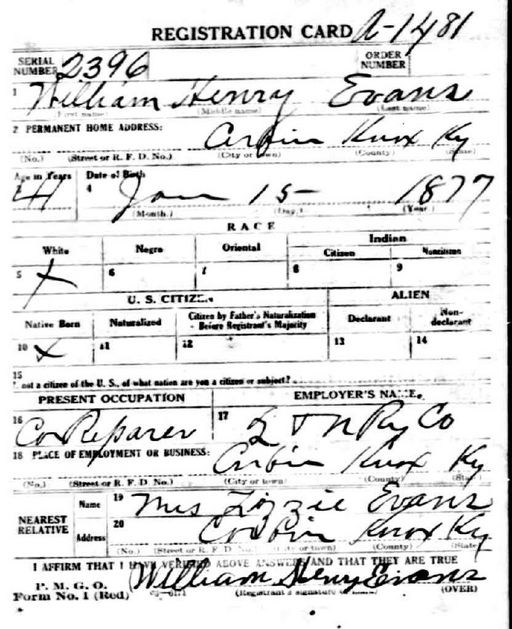 REGISTRATION CARD A-1481
SERIAL NUMBER 2396 ORDER NUMBER
1 William Henry Evans
(First name) (Middle name) (Last name)
2 PERMANENT HOME ADDRESS: Corbin Knox Ky
(No.) (Street or R. F. D. No.) (City or town) (County) (State)
Age in Years Date of Birth
41 4 Jan 15 1877
(Month.) (Day.) (Year.)
RACE
White Negro Oriental Indian
Citizen Noncitizen
5 X 6 7 8 9
U. S. CITIZEN ALIEN
Native Born Naturalized Citizen by Father's Naturalization Before Registrant's Majority Declarant Non-declarant
10 X 11 12 13 14
15
not a citizen of the U. S., of what nation are you a citizen or subject?
PRESENT OCCUPATION EMPLOYER'S NAME
16 Car Reparer 17 L & N Ry Co
18 PLACE OF EMPLOYMENT OR BUSINESS: Corbin Knox Ky
(No.) (Street or R. F. D. No.) (City or town) (County) (State)
NEAREST RELATIVE Name 19 Mrs Lizzie Evans
Address 20 Corbin Knox Ky
(No.) (Street or R. F. D. No.) (City or town) (County) (State)
I AFFIRM THAT I HAVE VERIFIED ABOVE ANSWERS AND THAT THEY ARE TRUE
P. M. G. O.
Form No. 1 (Red) William Henry Evans
(Registrant's signature) (OVER)